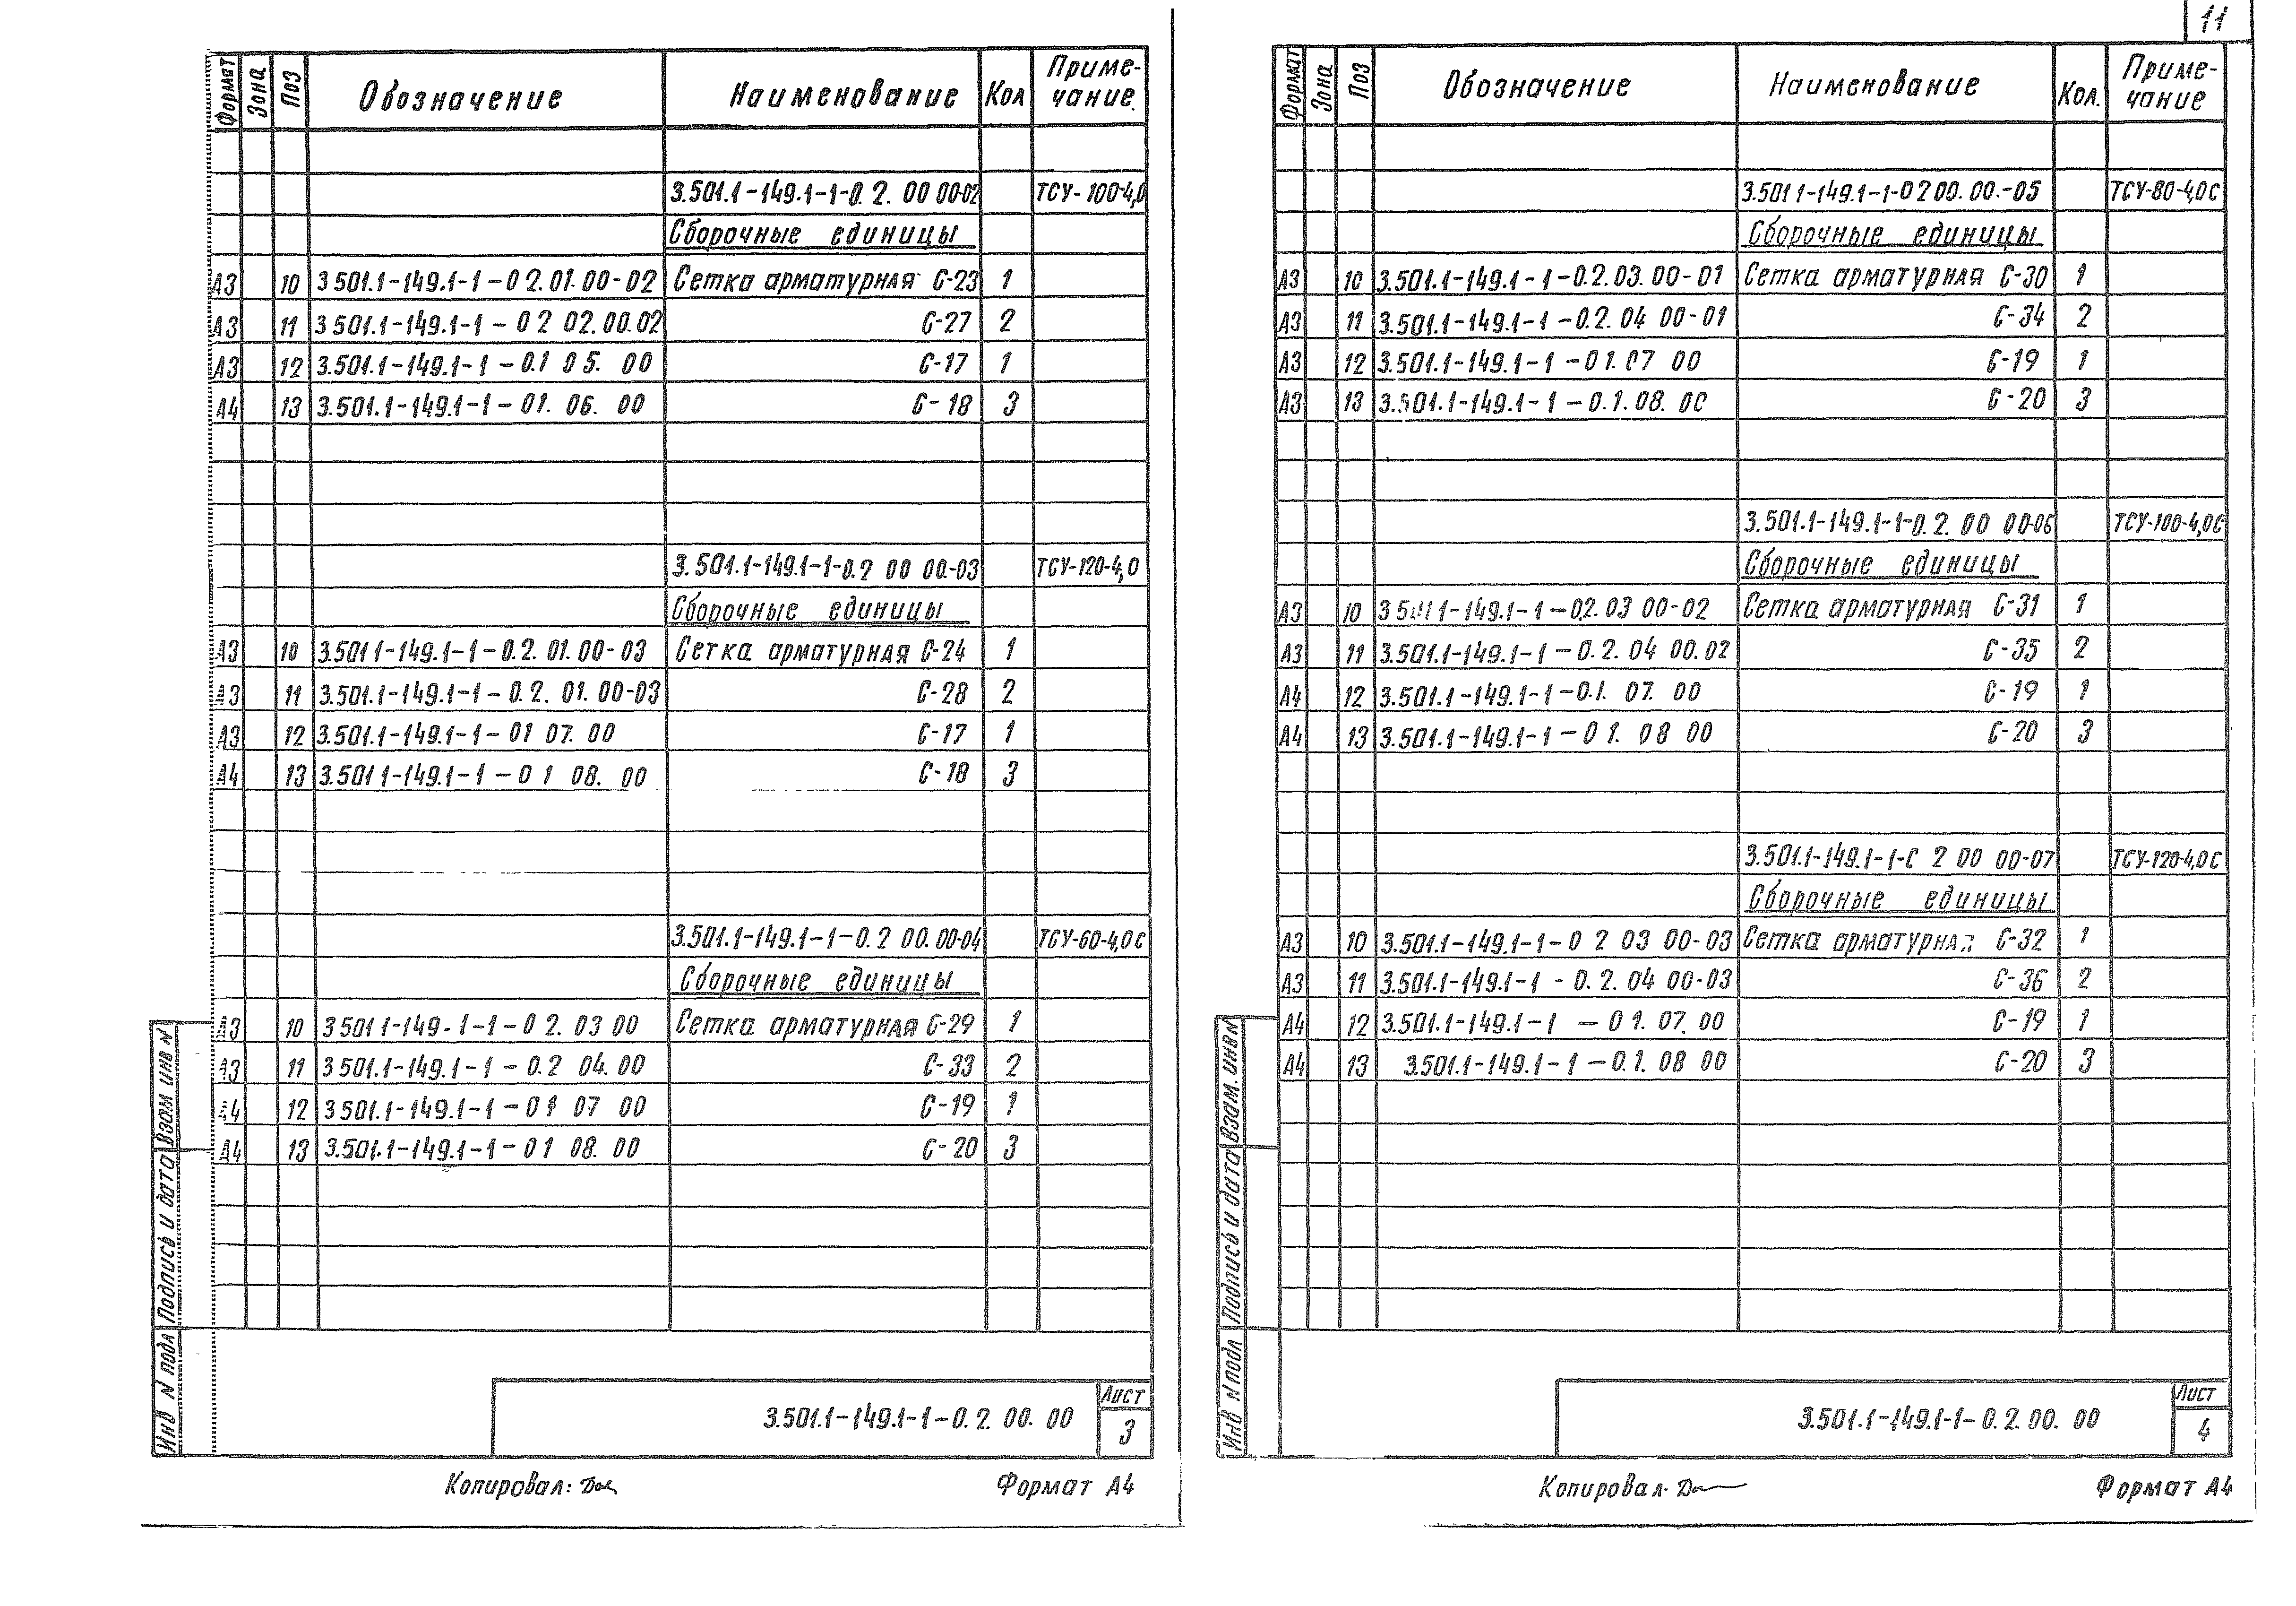 11
Формат Зона Поз Обозначение Наименование Кол Приме-чание.
3.501.1-149.1-1-0.2.00 00-02 ТСУ-100-4,0
Сборочные единицы
А3 10 3 501.1-149.1-1-0 2.01.00-02 Сетка арматурная С-23 1
А3 11 3 501.1-149.1-1-0 2 02.00.02 С-27 2
А3 12 3.501.1-149.1-1-0.1 05. 00 С-17 1
А4 13 3.501.1-149.1-1-01. 06. 00 С-18 3
3.501.1-149.1-1-0.2 00 00.-03 ТСУ-120-4,0
Сборочные единицы
А3 10 3.501 1-149.1-1-0.2.01.00-03 Сетка арматурная С-24 1
А3 11 3.501.1-149.1-1-0.2.01.00-03 С-28 2
А3 12 3.501.1-149.1-1-01 07.00 С-17 1
А4 13 3.501 1-149.1-1-0 1 08. 00 С-18 3
3.501.1-149.1-1-0.2 00.00-04 ТСУ-60-4,0С
Сборочные единицы
А3 10 3 501 1-149-1-1-0 2. 03 00 Сетка арматурная С-29 1
А3 11 3 501.1-149.1-1-0.2 04.00 С-33 2
А4 12 3 501.1-149.1-1-01 07 00 С-19 1
А4 13 3.501.1-149.1-1-0 1 08. 00 С-20 3
Взам инв N
Подпись и дата
Инв N подл
3.501.1-149.1-1-0.2.00.00
Лист
3
Копировал:
Формат А4
Формат Зона Поз Обозначение Наименование Кол. Приме-чание
3.501 1-149.1-1-0 2 00.00.-05 ТСУ-80-4,0С
Сборочные единицы
А3 10 3.501.1-149.1-1-0.2.03.00-01 Сетка арматурная С-30 1
А3 11 3.501.1-149.1-1-0.2.04 00-01 С-34 2
А3 12 3.501.1-149.1-1-01.07 00 С-19 1
А3 13 3.501.1-149.1-1-0.1.08.0С С-20 3
3.501.1-149.1-1-0.2.00 00-06 ТСУ-100-4,0С
Сборочные единицы
А3 10 3 501 1-149.1-1-02.03 00-02 Сетка арматурная С-31 1
А3 11 3.501.1-149.1-1-0.2.04 00.02 С-35 2
А4 12 3.501.1-149.1-1-0.1. 07. 00 С-19 1
А4 13 3.501.1-149.1-1-0 1. 08 00 С-20 3
3.501.1-149.1-1-С 2 00 00-07 ТСУ-120-4,0С
Сборочные единицы
А3 10 3.501.1-149.1-1-0 2 03 00-03 Сетка арматурная С-32 1
А3 11 3.501.1-149.1-1-0.2.04 00-03 С-36 2
А4 12 3.501.1-149.1-1-01.07.00 С-19 1
А4 13 3.501.1-149.1-1-0.1.08 00 С-20 3
Взам. инв N
Подпись и дата
Инв N подл
3.501.1-149.1-1-0.2.00.00
Лист
4
Копировал.
Формат А4